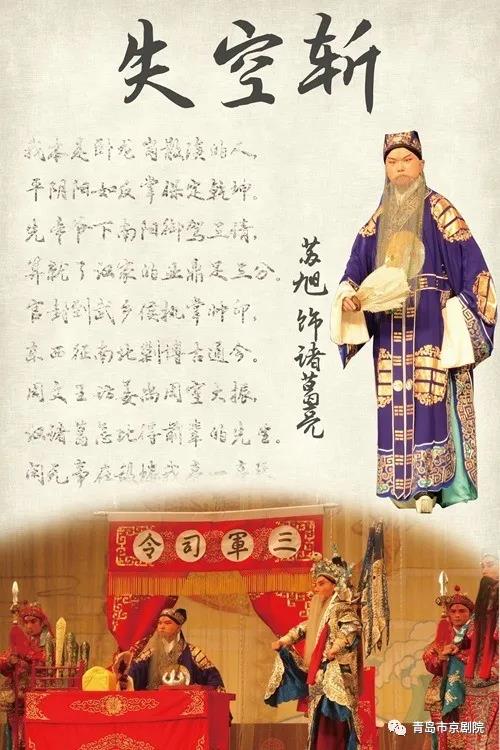 失空斩
我本是卧龙岗散淡的人,
平阴阳如反掌保定乾坤。
先帝爷下南阳御驾三请,
算就了汉家的业鼎足三分。
官封到武乡侯执掌帅印,
东西征南北剿博古通今。
周文王访姜尚周室大振,
汉诸葛怎比得前辈的先生。
闲无事在敌楼我亮一亮
苏旭 饰 诸葛亮
三軍司令
青岛市京剧院